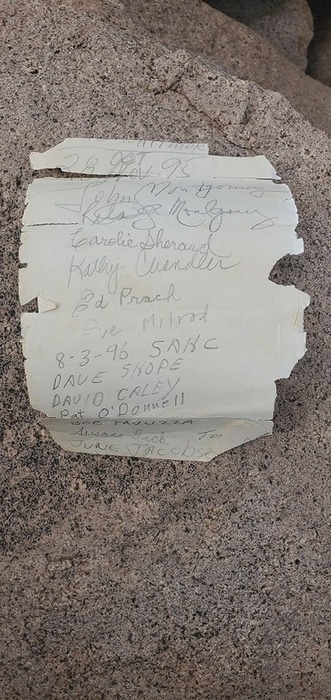 26 Oct
Nov 95
John Montgomery
Montgomery
Carolie Sherard
Kathy Chandler
Ed Prach
Eve Milrod
8-3-96 SAHC
DAVE SHOPE
DAVID CALEY
Pat O'Donnell
BOB
JUNE JACOBS